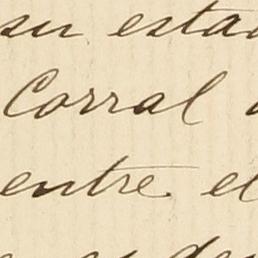 su estad
Corral
entre el